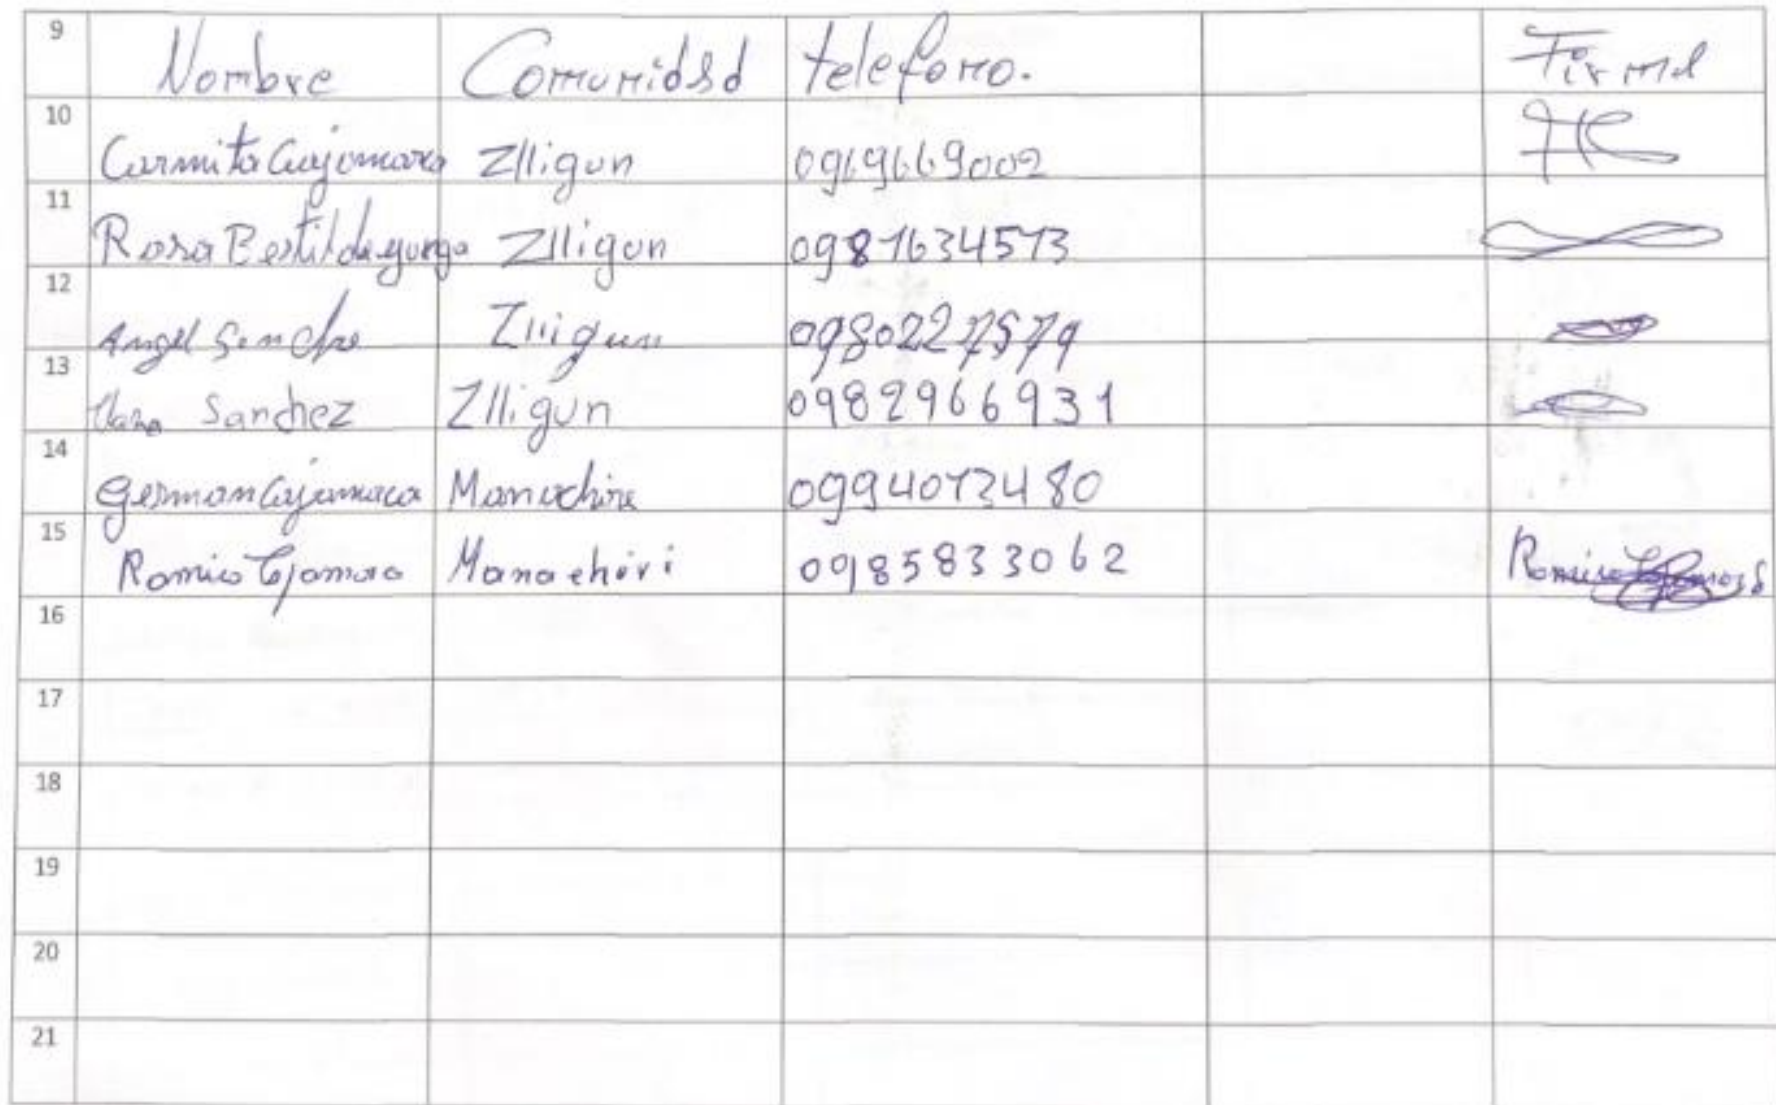 9 Nombre Comunidad telefono. Firma
10 Carmita Cajamara Zlligun 0969669002
11 Rosa Bestilda yunga Zlligun 0981634513
12 Angel Sanche Zlligun 0980227579
13 Sanchez Zlligun 0982966931
14 German Cajamaca Manachire 0994013480
15 Romiro Cajamara Manachiri 0985833062 Romiro
16
17
18
19
20
21